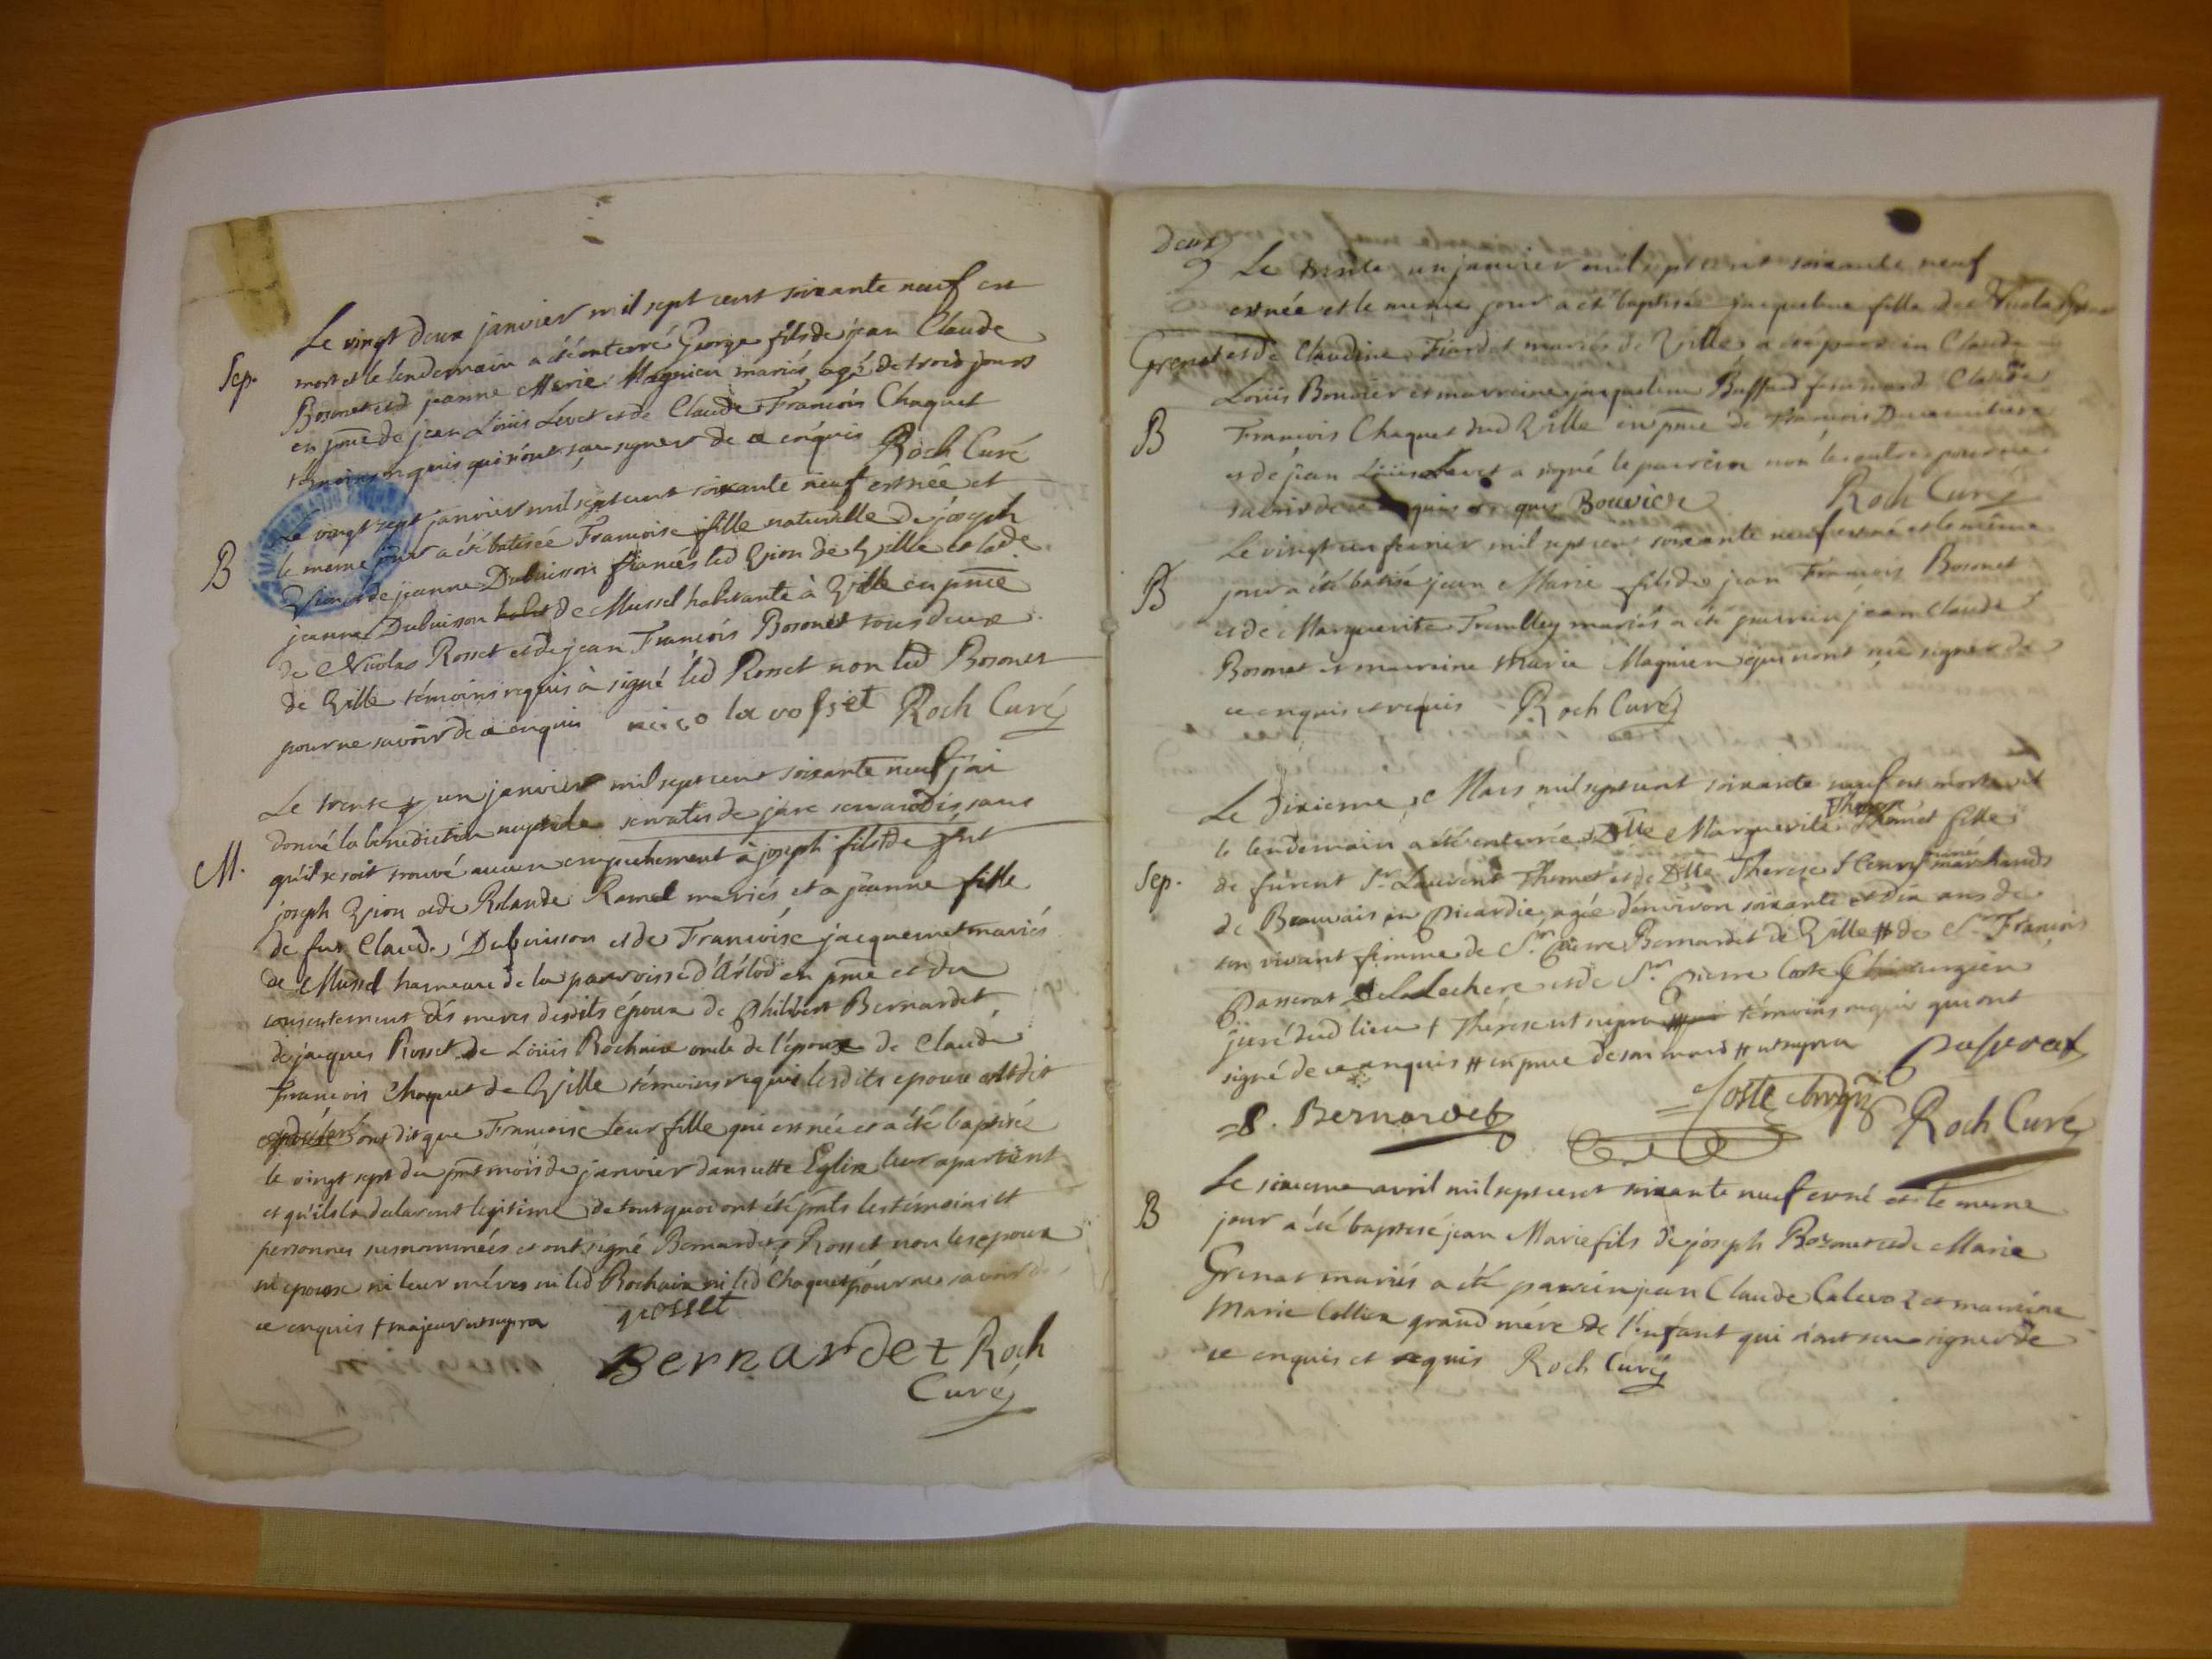 Le vingt deux janvier mil sept cent soixante neuf est
Sep. mort et le lendemain a été enterré George fils de jean Claude
Bosonet et d jeanne Marie Magnien mariés agé de trois jours
en pnce de jean Loüis Levet et de Claude François Chaquet
témoins requis qui n'ont sçu signer de ce enquis Roch Curé
Le vingt sept janvier mil sept cent soixante neuf est née et
B le meme jour a été batisée Francoise fille naturelle de joseph
et de jeanne Dubuisson fiancés led de Ville et lade
jeanne Dubuisson de Mussel habitante à Ville en pnce
de Nicolas Rosset et de jean François Bosonet tous deux
de Ville témoins requis à signé led Rosset non led Bosonet
pour ne savoir de ce enquis Roch Curé
Le trente un janvier mil sept cent soixante neuf j'ai
donné la benediction nuptiale servatis de jure servandis sans
M. qu'il se soit trouvé aucun empechement à joseph fils de
joseph et de Rolande Ramel mariés et a jeanne fille
de fut Claude Dubuisson et de Françoise jacquemet mariés
de Mussel hameau de la parroisse d'Arlod en pnce et du
consentement des meres desdits époux de Philibert Bernardet
de jacques Rosset de Loüis Rochaix oncle de l'épouse de Claude
François Chaquet de Ville témoins requis lesdits epoux
ont dit que Francoise leur fille qui est née et a été baptisée
le vingt sept du pnt mois de janvier dans cette Eglise leur apartient
et qu'ils la declarent legitime de tout quoi ont été pnts les témoins et
personnes susnommées et ont signé Bernardet Rosset non les epoux
ni epouse ni leur méres ni led Rochaix ni led Chaquet pour ne savoir de
ce enquis † majeur ut supra
Rosset
Bernardet Roch
Curé
deux
2 Le trente un janvier mil sept cent soixante neuf
est née et le meme jour a été baptisée jacqueline fille de Nicolas
Grenat et de Claudine mariés de Ville a été parrein Claude
Loüis Bouvier et marreine jacqueline Buffard Claude
B François Chaquet dud Ville en pnce de François
et de jean Loüis Levet a signé le parrein non les autres pour ne
savoir de ce enquis Bouvier Roch Curé
Le vingt un fevrier mil sept cent soixante neuf est né et le même
B jour a été batisé jean Marie fils de jean François Bosonet
et de Marguerite mariés a été parrein jean Claude
Bosonet et marreine Marie Magnien qui n'ont sçu signer de
ce enquis et requis Roch Curé
Le dixieme Mars mil sept cent soixante neuf est morte et
le lendemain a été enterrée Dlle Marguerite Themet fille
Sep. de furent Sr Laurent Themet et de Dlle Therese mariés marchands
de Beauvais en Picardie, agée d'environ soixante et dix ans de
son vivant femme de Sr Pierre Bernardet de Ville # de Sr François
Passerat DelaLechere et de Sr Pierre Coste Chirurgien
juré dud lieu † Thérese ut supra témoins requis qui ont
signé de ce enquis # en pnce de son mari # ut supra Passerat
P. Bernardet Coste chirgn Roch Curé
Le sixieme avril mil sept cent soixante neuf est né et le meme
B jour a été baptisé jean Marie fils de joseph Bosonet et de Marie
Grenat mariés a été parrein jean Claude Calevoz et marreine
Marie grand mére de l'enfant qui n'ont sceu signer de
ce enquis et requis Roch Curé